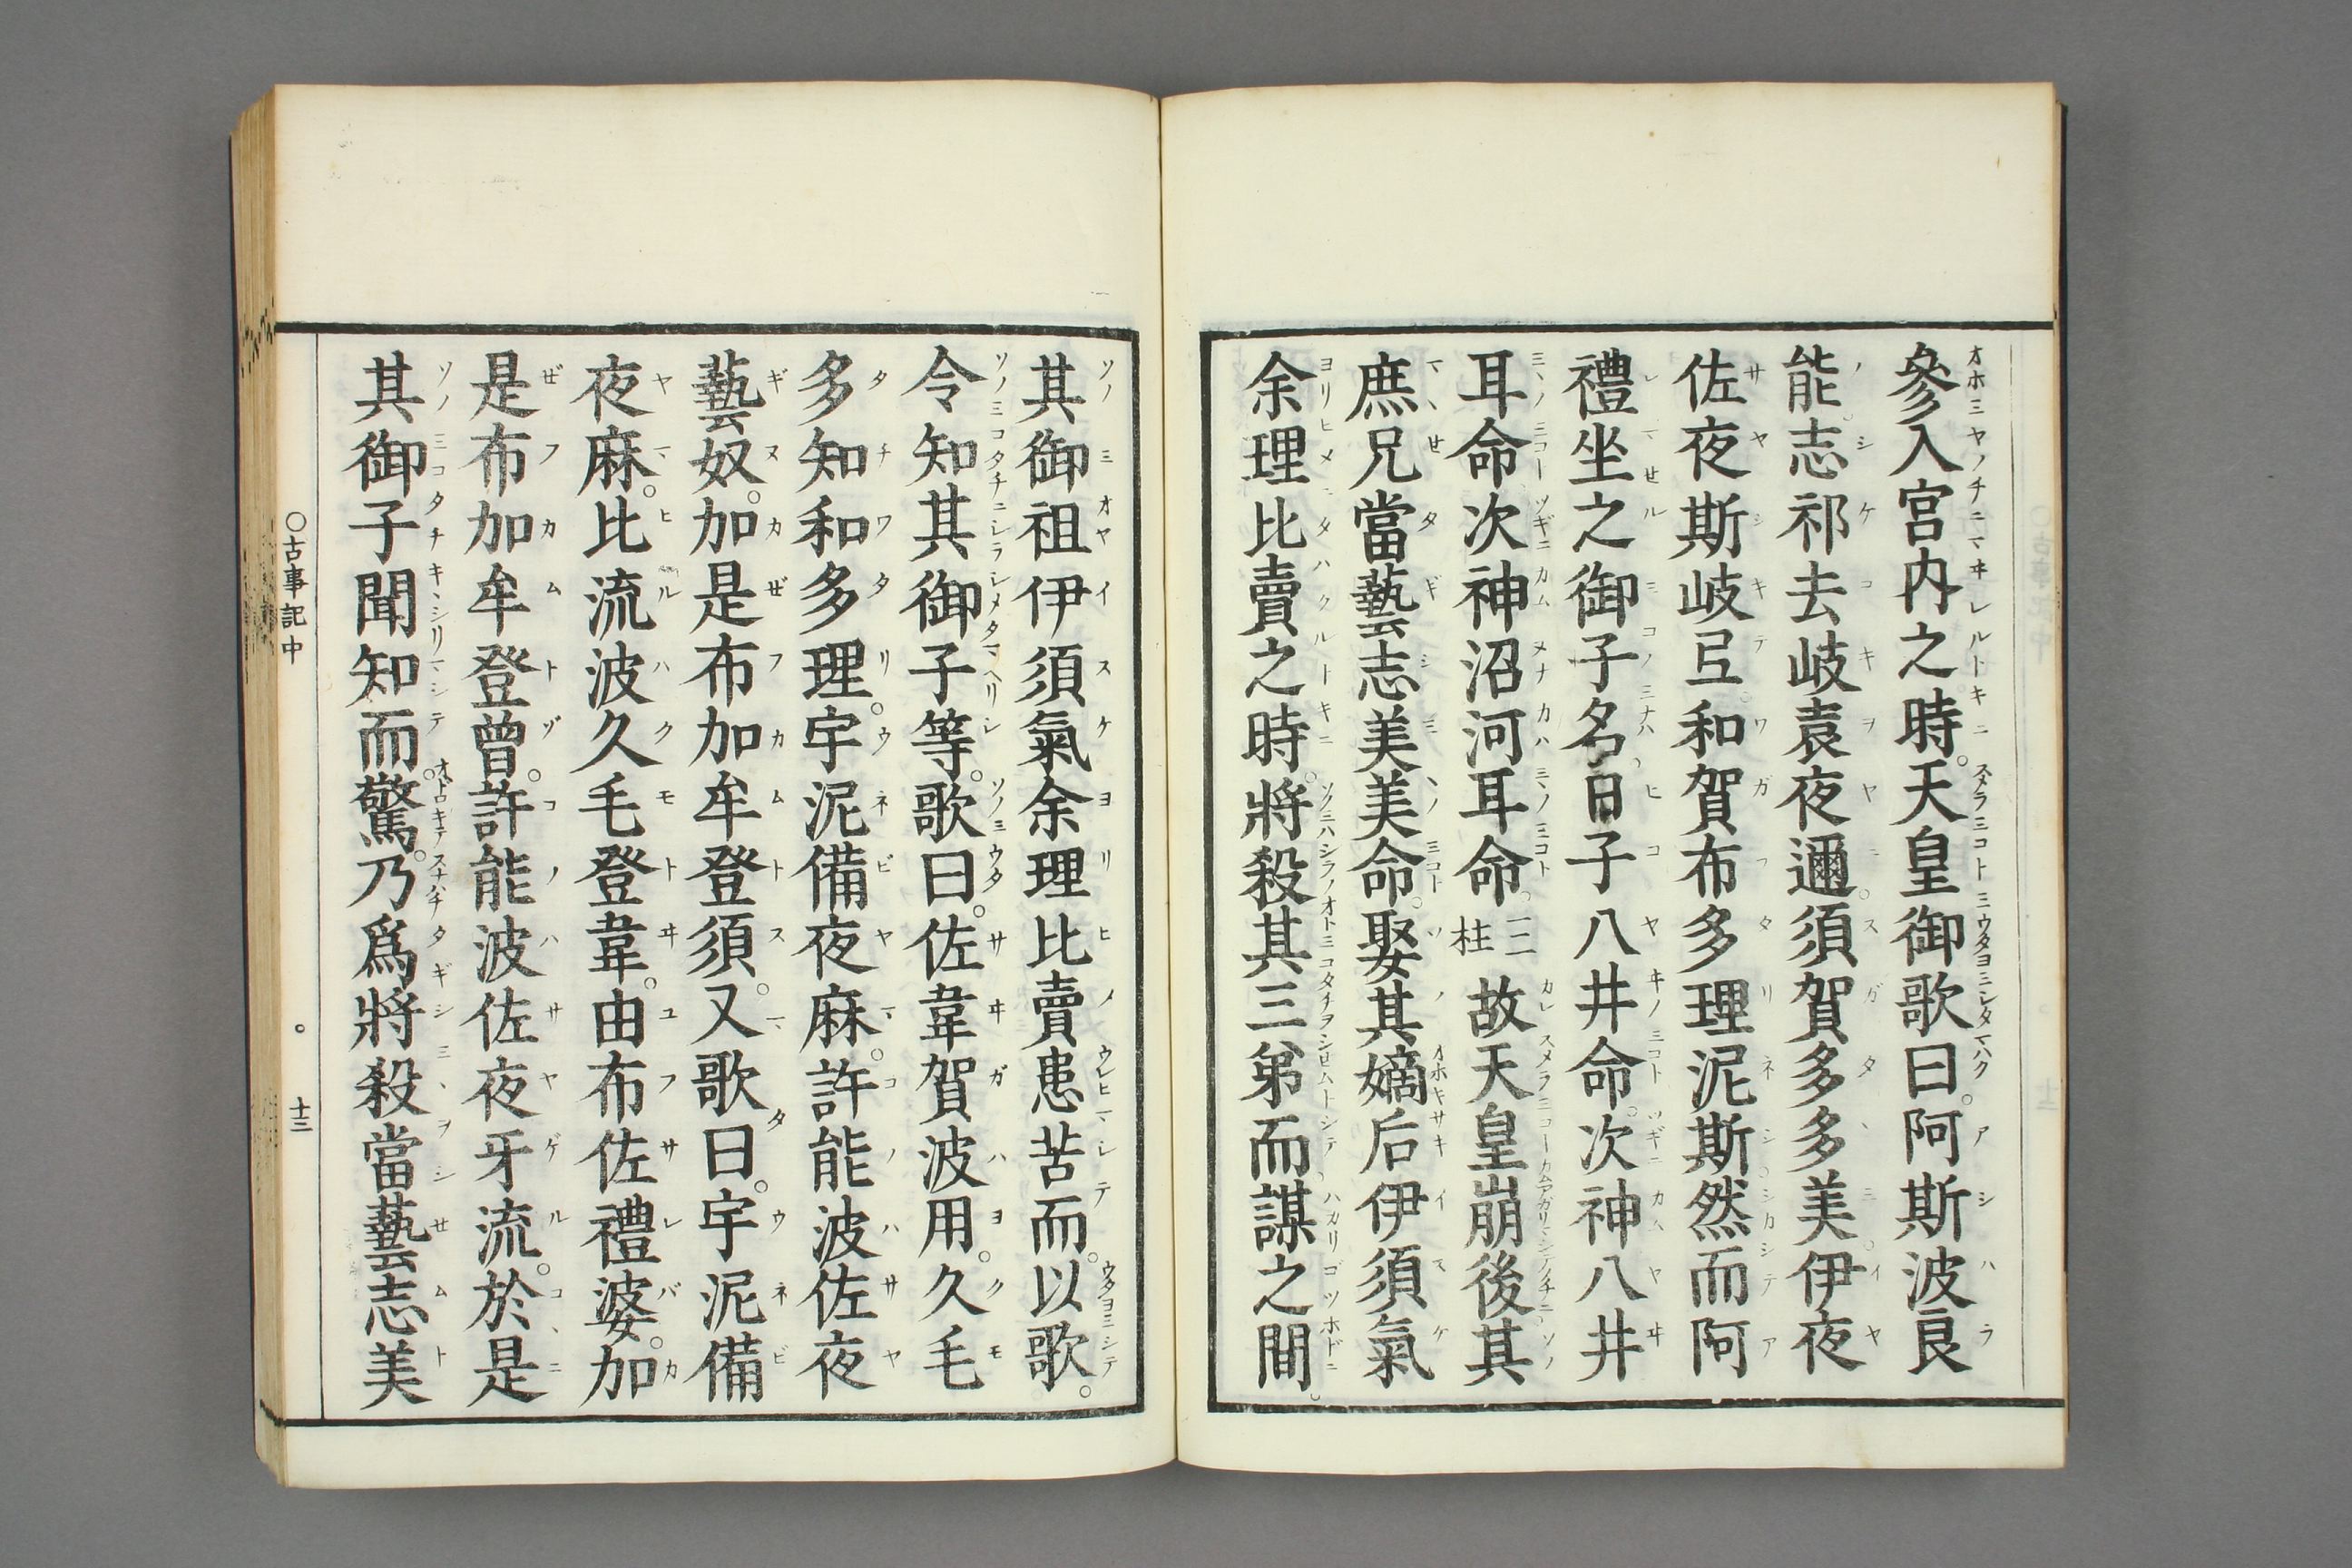 參入宮内之時。天皇御歌曰。阿斯波良
能。志祁去岐袁夜邇。須賀多多美。伊夜
佐夜斯岐弖。和賀布多理泥斯。然而阿
禮坐之御子名、日子八井命。次神八井
耳命次神沼河耳命。三柱故天皇崩後其
庶兄當藝志美美命。娶其嫡后伊須氣
余理比賣之時。將殺其三弟而謀之間。
其御祖伊須氣余理比賣患苦而。以歌。
令知其御子等。歌曰。佐韋賀波用。久毛
多知和多理。宇泥備夜麻。許能波佐夜
藝奴。加是布加牟登須。又歌曰。宇泥備
夜麻。比流波久毛登韋。由布佐禮婆。加
是布加牟登曾。許能波佐夜牙流。於是
其御子聞知而。驚。乃爲將殺當藝志美
○古事記中
十三